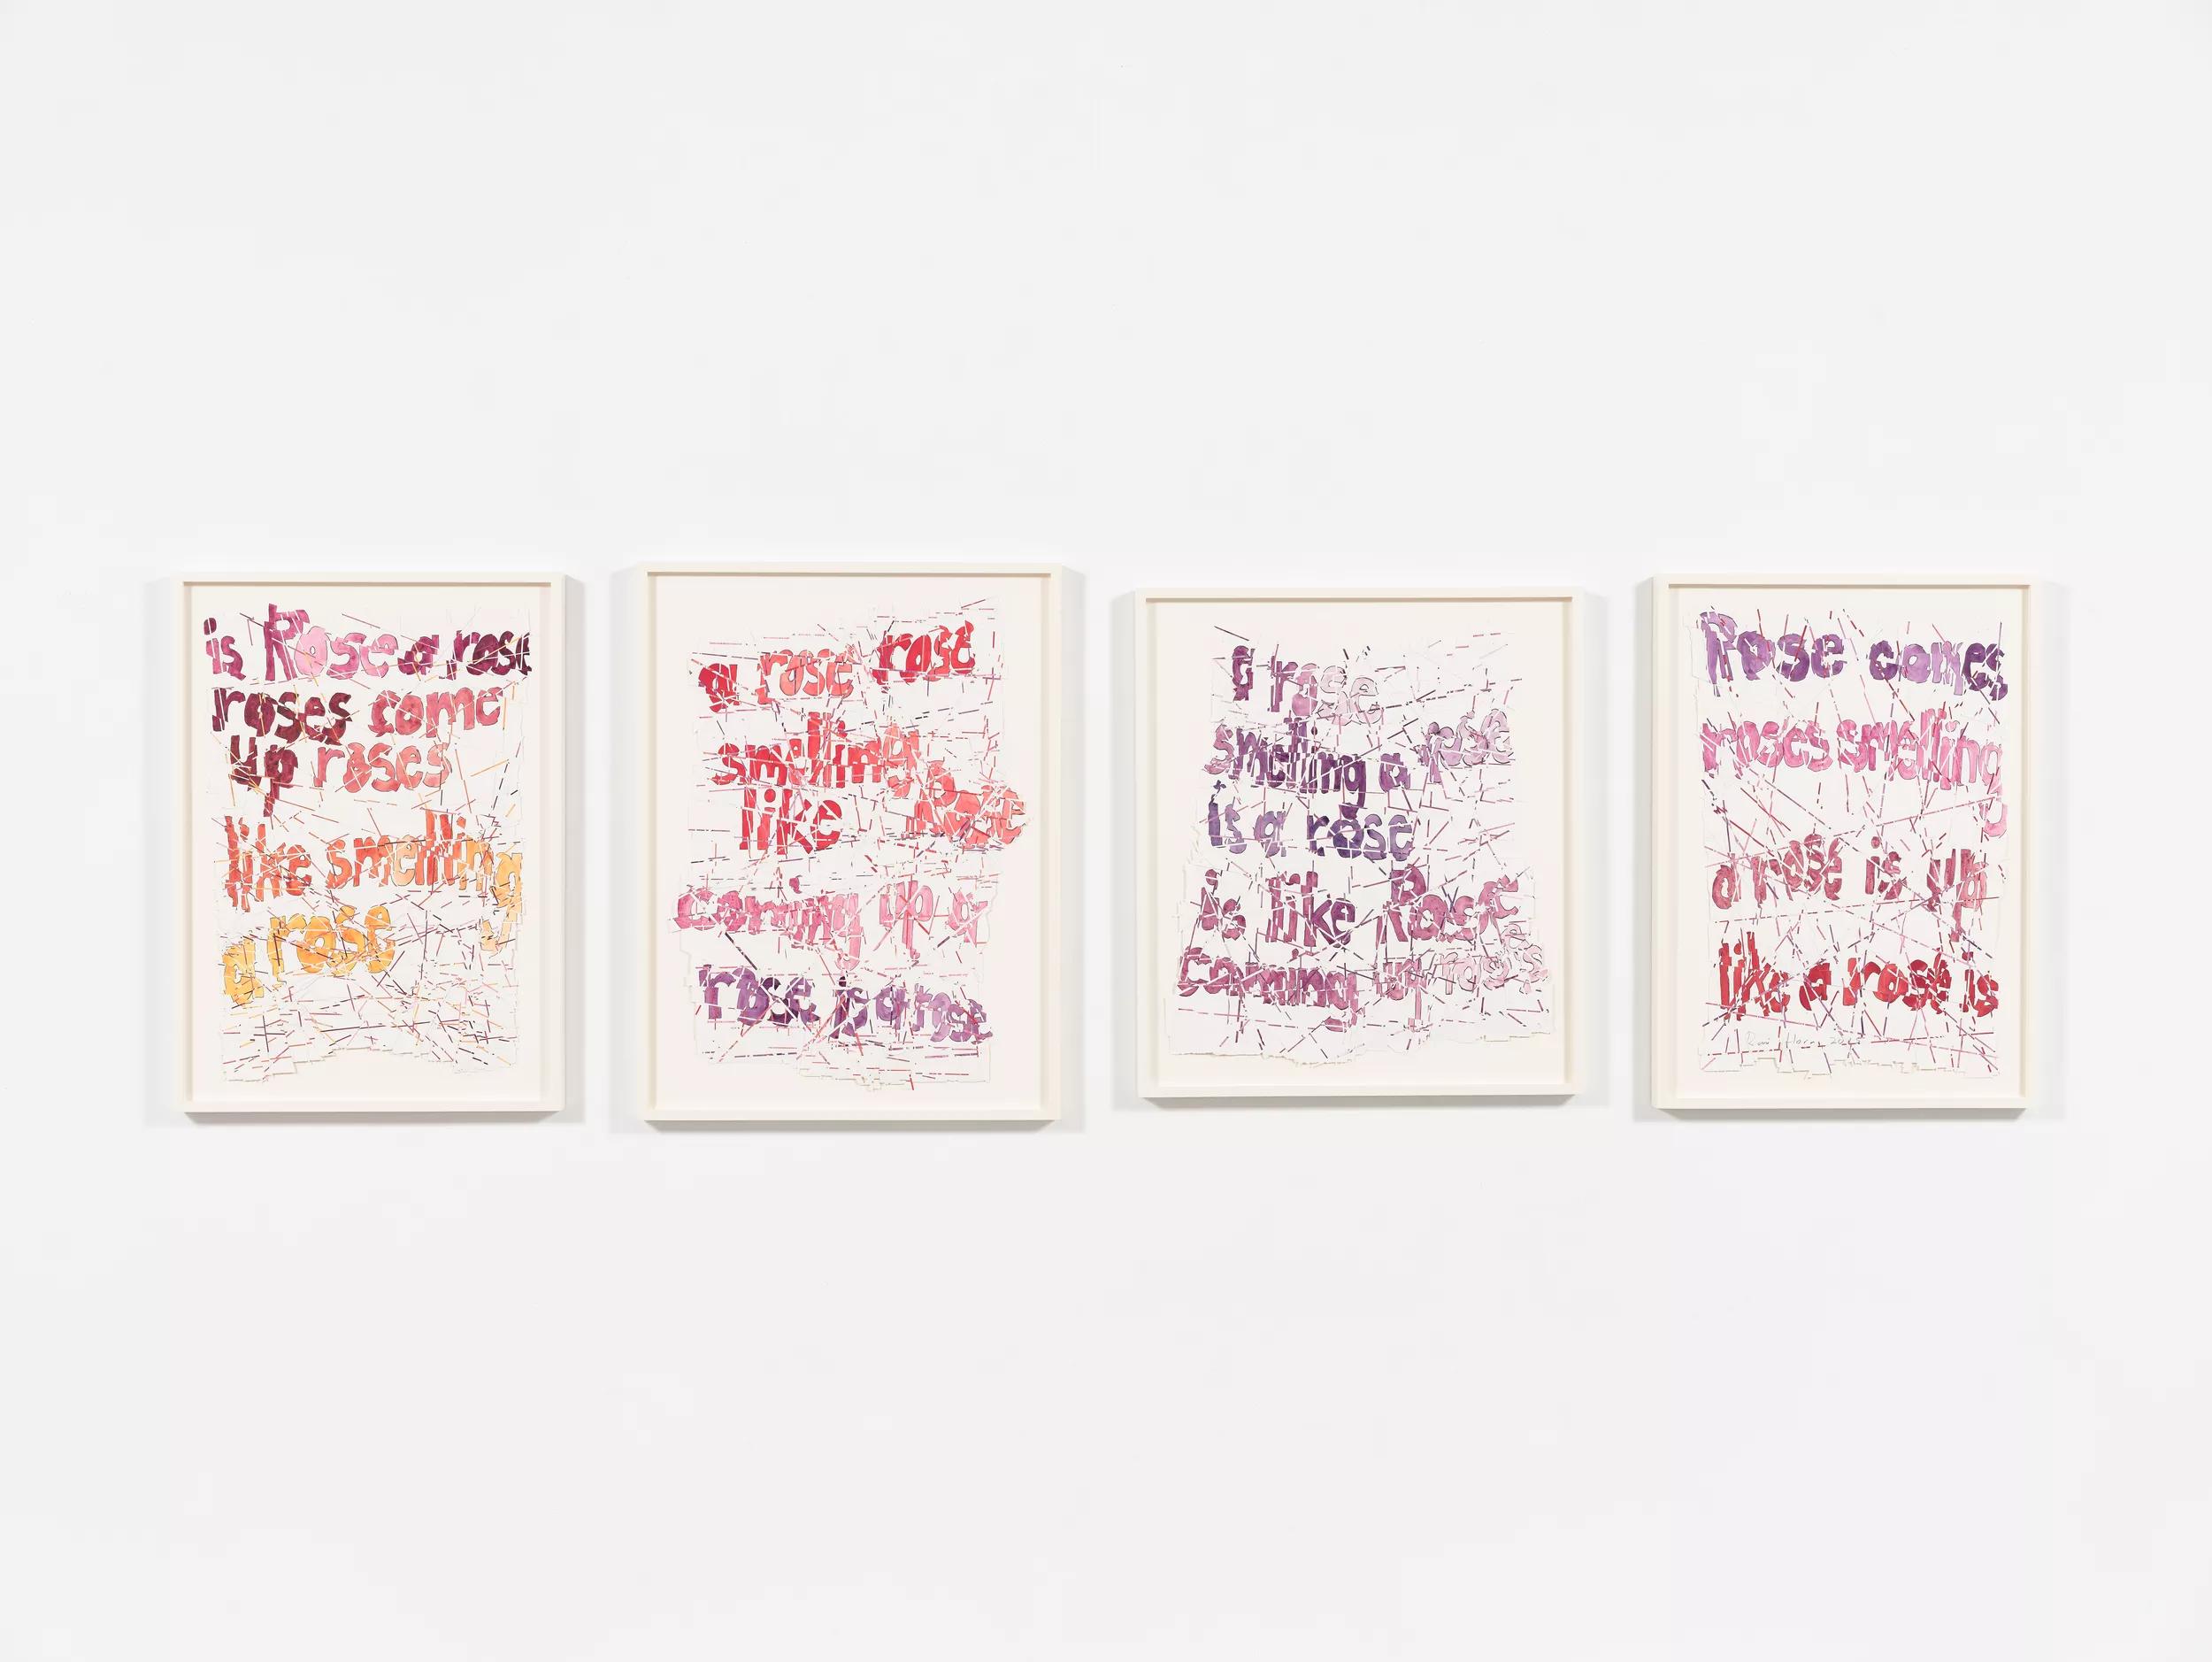 is Rose a rose
roses come
up roses
like smelling
a rose
a rose rose
smelling
like Rose
coming up a
rose is a rose
a rose
smelling a rose
is a rose
is like Rose
coming up roses
Rose comes
roses smelling
a rose is up
like a rose is